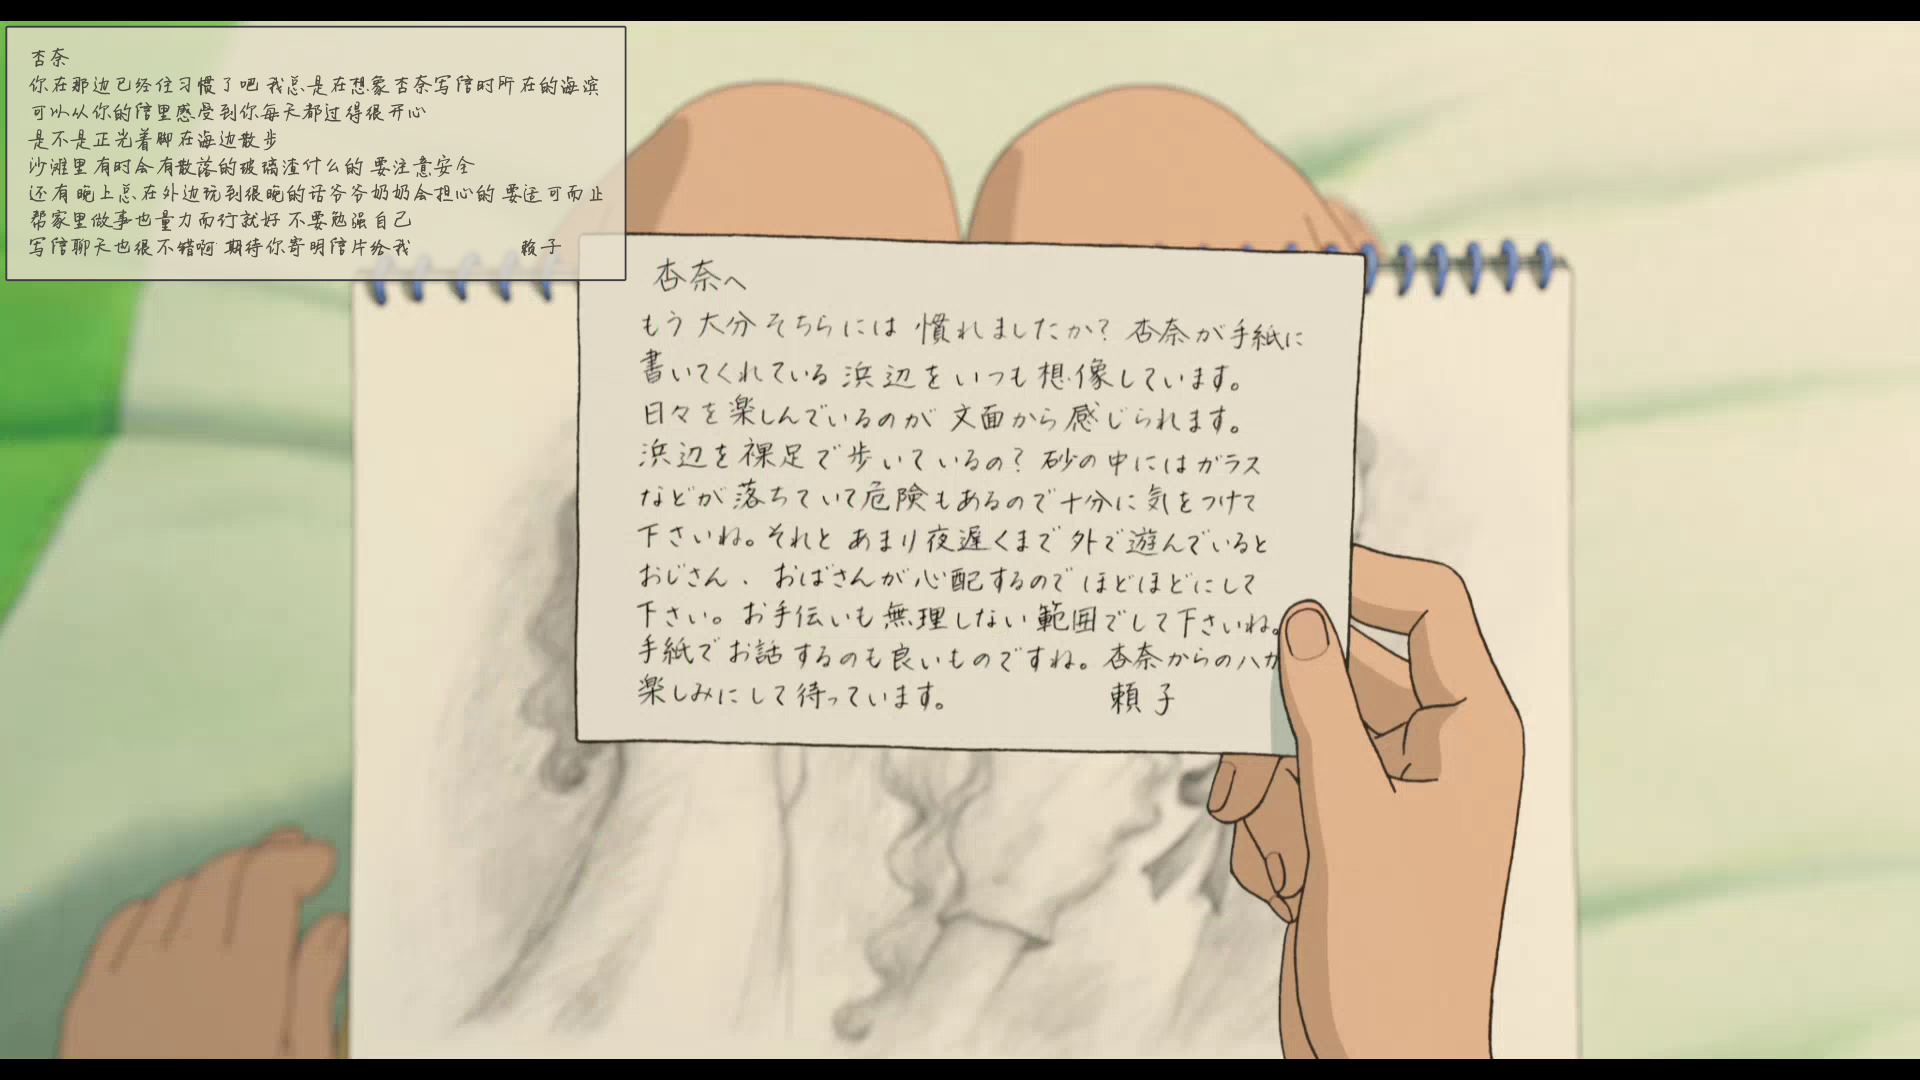 杏奈
你在那边已经住习惯了吧 我总是在想象杏奈写信时所在的海滨
可以从你的信里感受到你每天都过得很开心
是不是正光着脚在海边散步
沙滩里有时会有散落的玻璃渣什么的 要注意安全
还有晚上总在外边玩到很晚的话爷爷奶奶会担心的 要适可而止
帮家里做事也量力而行就好 不要勉强自己
写信聊天也很不错啊 期待你寄明信片给我 赖子
杏奈へ
もう大分そちらには慣れましたか?杏奈が手紙に
書いてくれている浜辺をいつも想像しています。
日々を楽しんでいるのが文面から感じられます。
浜辺を裸足で歩いているの?砂の中にはガラス
などが落ちていて危険もあるので十分に気をつけて
下さいね。それとあまり夜遅くまで外で遊んでいると
おじさん、おばさんが心配するのでほどほどにして
下さい。お手伝いも無理しない範囲でして下さいね。
手紙でお話するのも良いものですね。杏奈からのハガ
楽しみにして待っています。 頼子